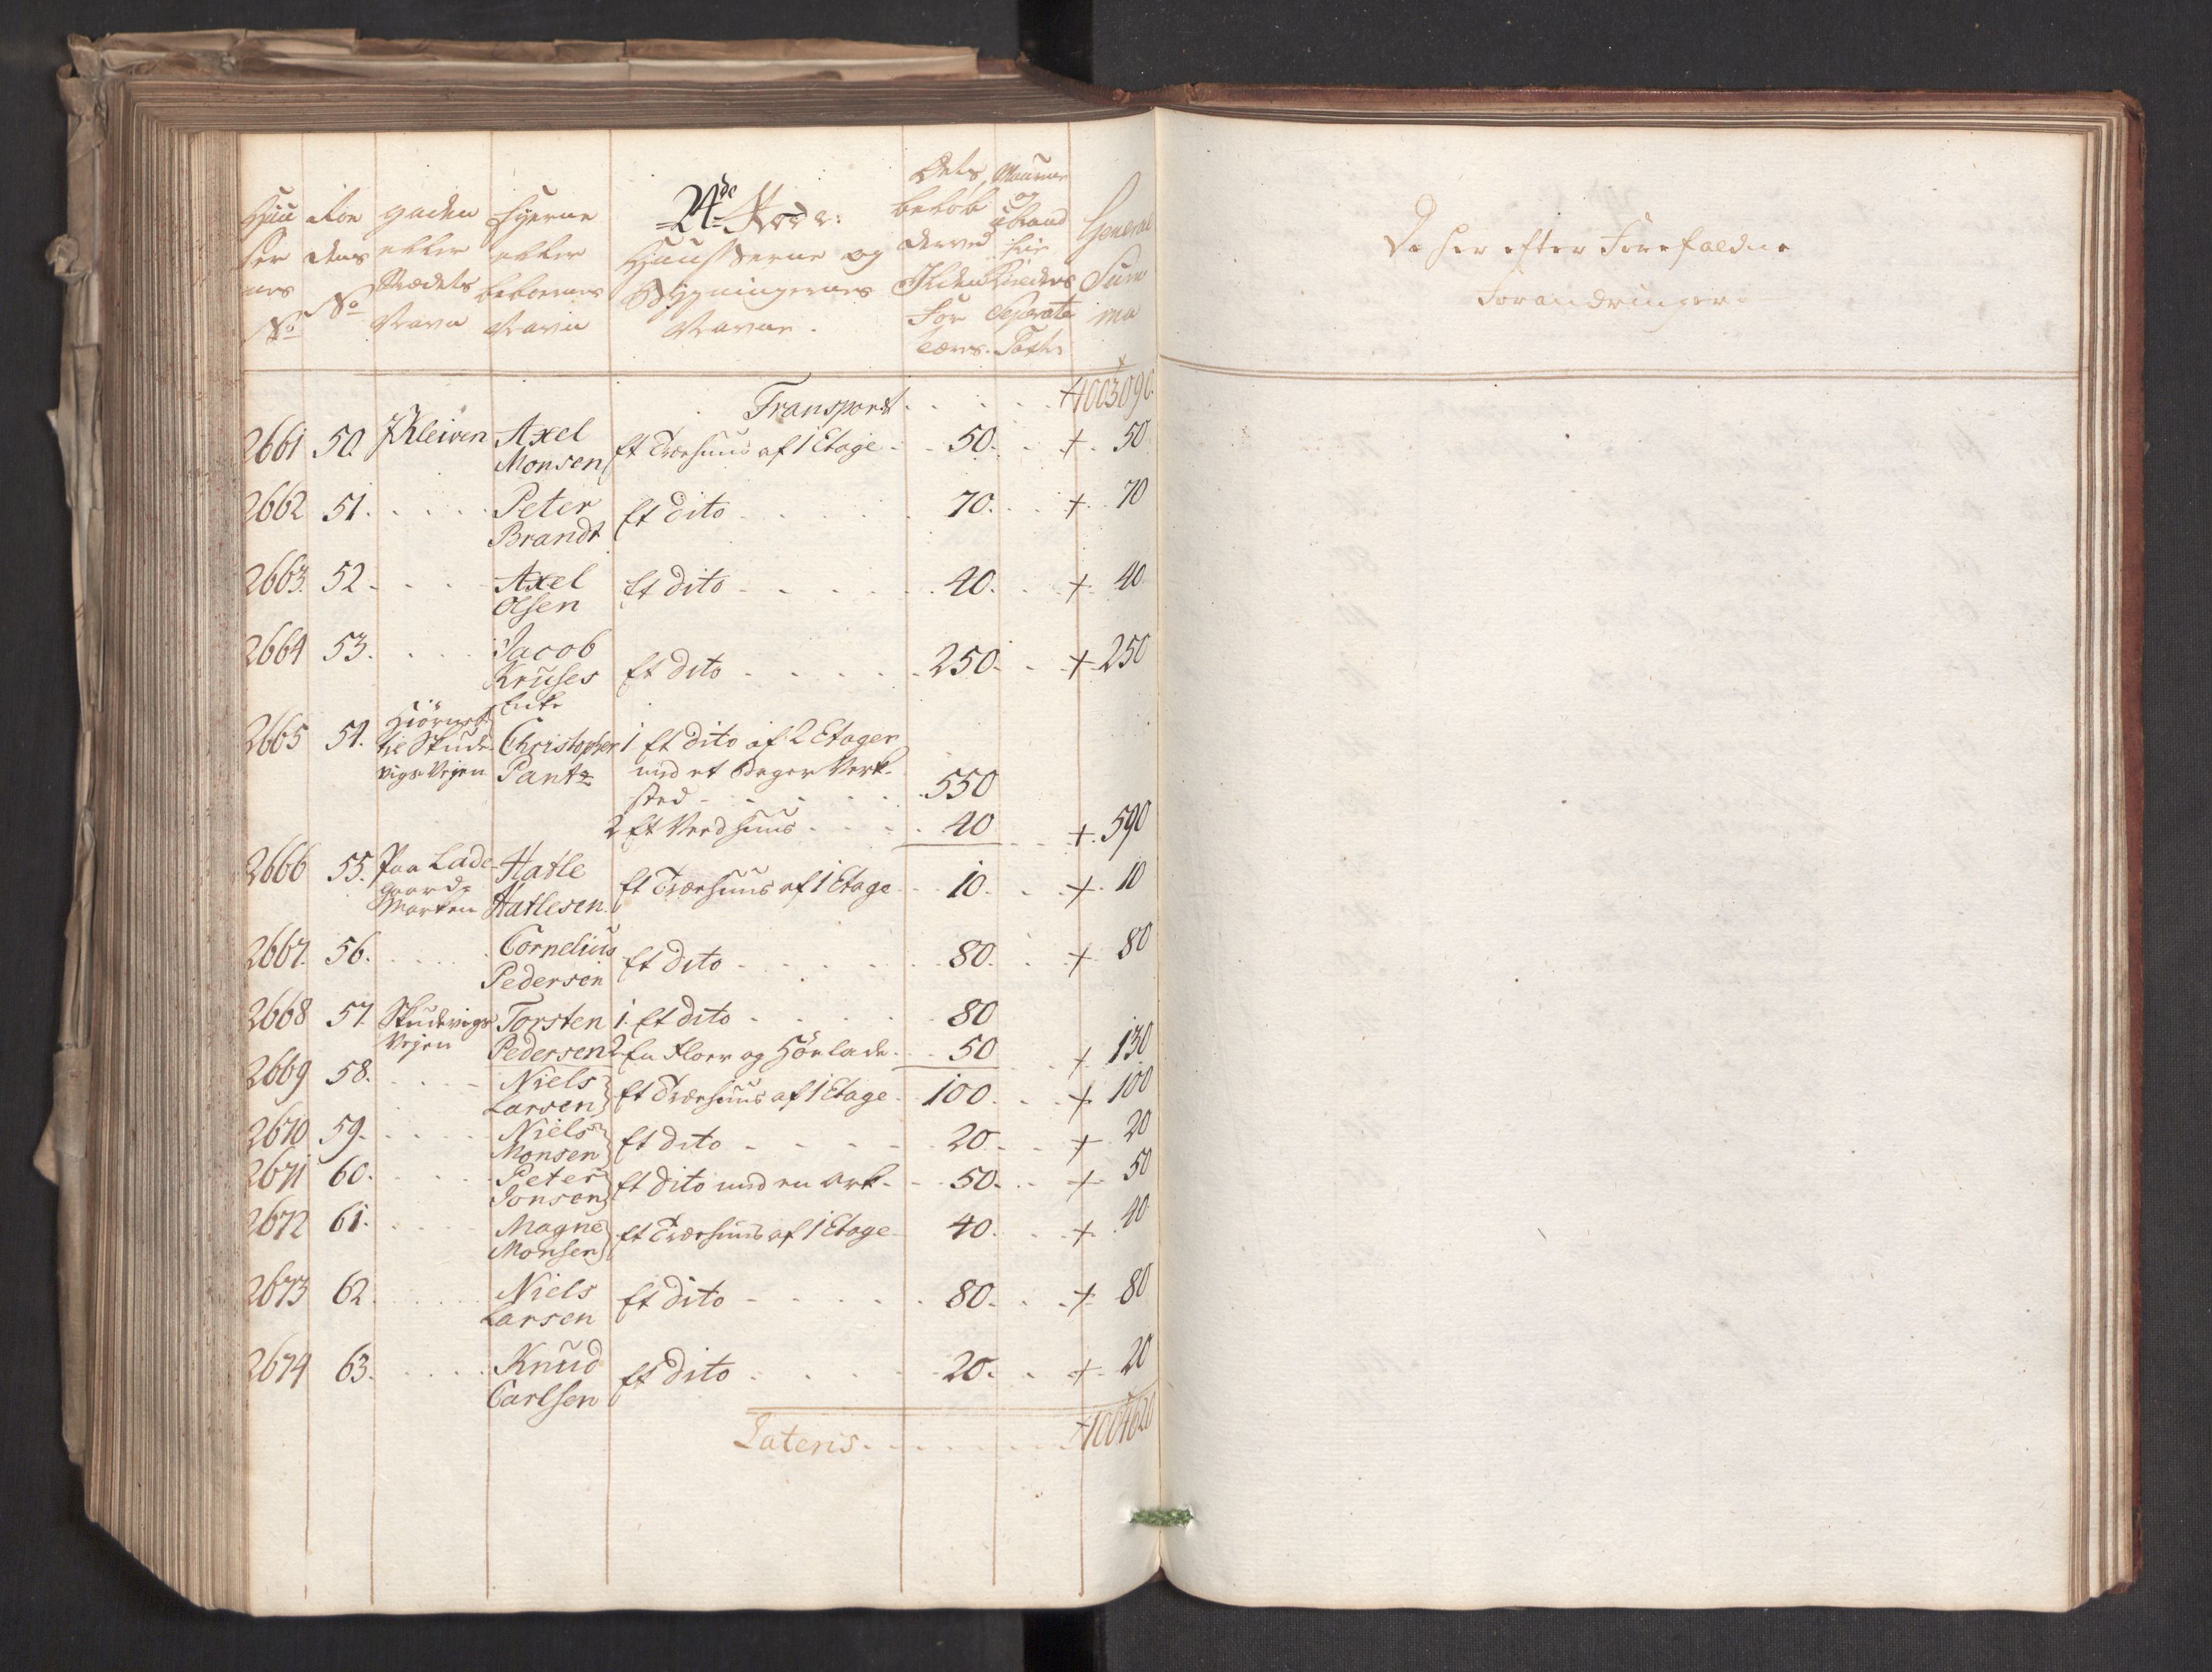 24de Rode:
Huu
ser
nes
No
Roe
dens
No
gadens
eller
Strædets
Navn
Eyerne
eller
beboernes
Navn
Huusserne og
Bygningernes
Navne.
Dets
beløb
derved
Ilden
For
tæres.
Muurene
og
brand
frie
Kielders
Separate
Taxt
General
Sum
ma
Transport . . . . 1003090.
2661 50. I Kleiven Axel Et Træehuus af 1 Etage - 50. + 50
Monsen
2662 51. Peter Et dito 70. + 70
Brandt
2663. 52 Axel Et dito 40. + 40
Olsen
2664 53. Jacob
Kruses Et dito 250. + 250
Enke
Hiørnet
2665 54. til Stude- Christopher 1 Et dito af 2 Etager
vigs Vejen Pantz med et Bager Verk-
sted 550
2 Et Vedhuus 40 + 590
2666 55. Paa Lade- Hatle Et Træehuus af 1 Etage 10. + 10
gaards
Marken Hatlesen
2667. 56. Cornelius Et dito 80. + 80
Pedersen
2668 57 Studevigs Torsten 1. Et dito 80
Vejen Pedersen 2 En Floer og Høelade 50 + 130
2669 58. Niels Et Træehuus af 1 Etage 100. + 100
Larsen
2670 59. Niels Et dito 20 + 20
Monsen
2671 60. Peter Et dito med en Ark 50. + 50
Jonsen
2672 61. Magne Et Træehuus af 1 Etage 40. + 40
Monsen
2673 62. Niels Et dito 80. + 80
Larsen
2674 63. Knud Et dito 20. + 20
Carlsen
Lateris 1004620
De her efter Forefaldne
Forandringer